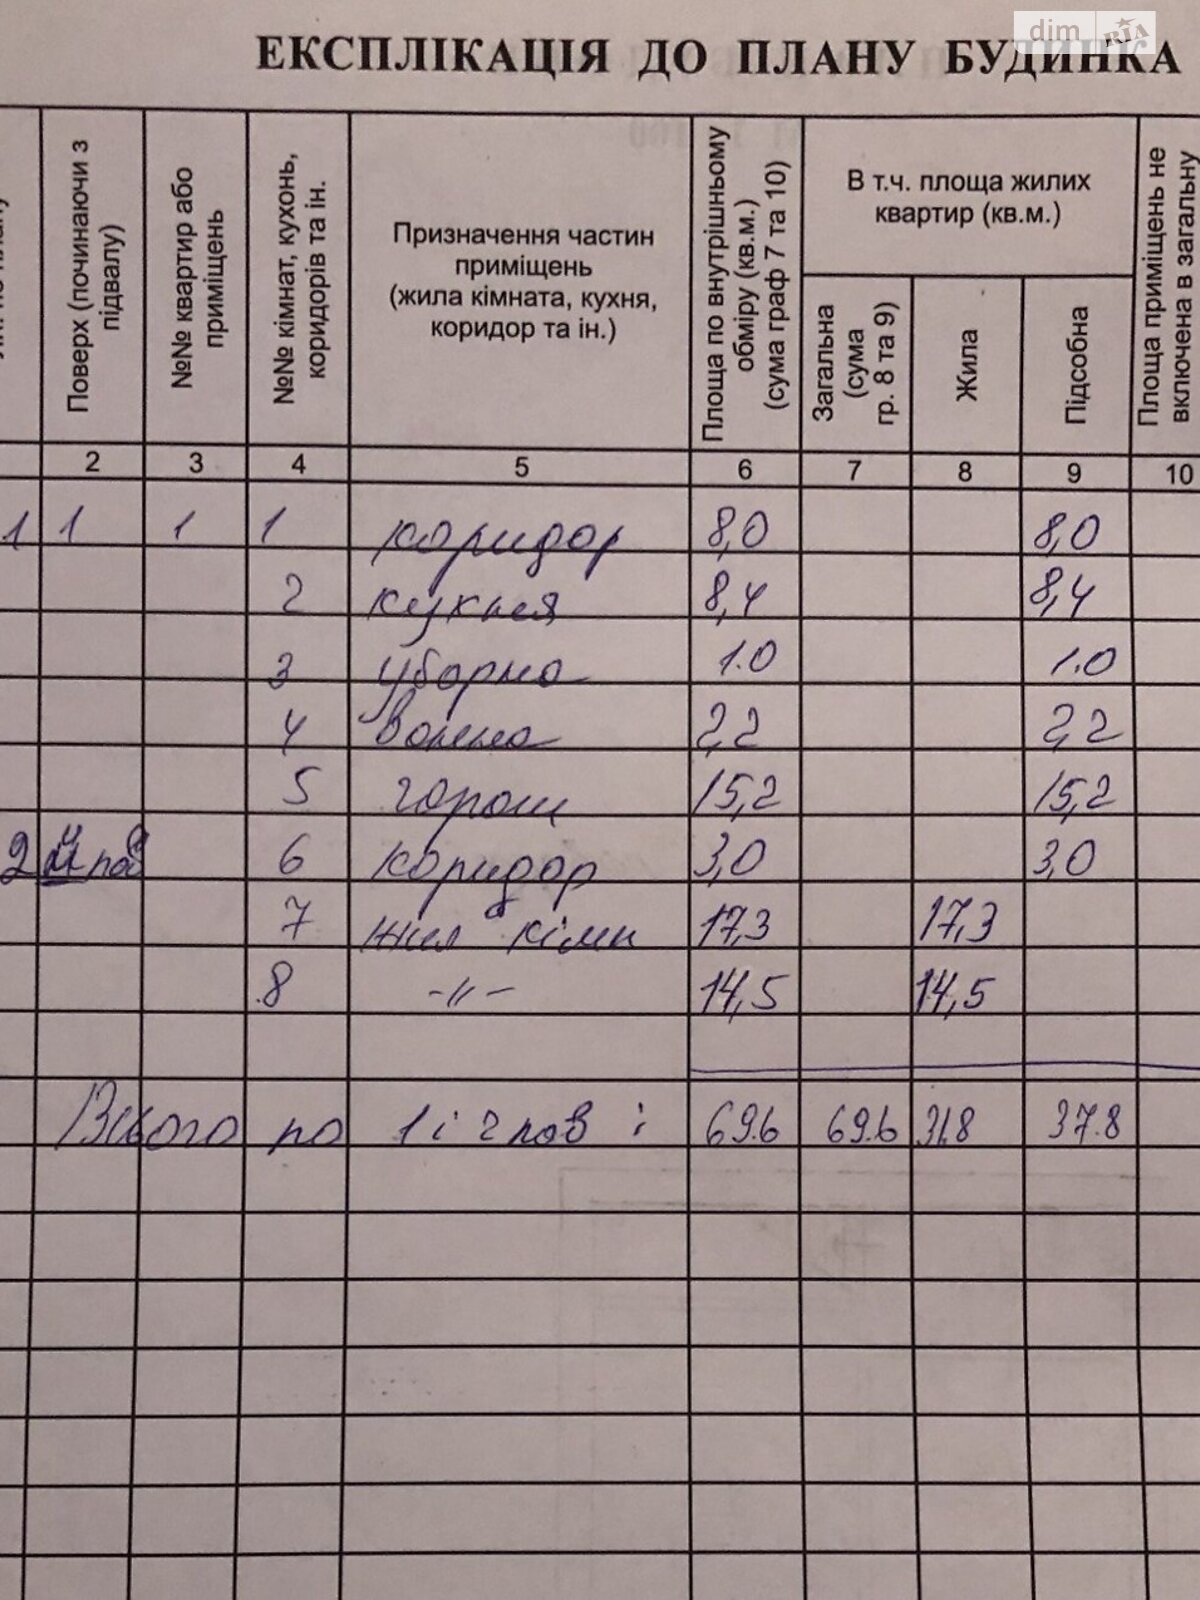 dim RIA
ЕКСПЛІКАЦІЯ ДО ПЛАНУ БУДИНКА
Поверх (починаючи з підвалу)
№№ квартир або приміщень
№№ кімнат, кухонь, коридорів та ін.
Призначення частин
приміщень
(жила кімната, кухня,
коридор та ін.)
Площа по внутрішньому
обміру (кв.м.)
(сума граф 7 та 10)
В т.ч. площа жилих
квартир (кв.м.)
Загальна
(сума
гр. 8 та 9)
Жила
Підсобна
Площа приміщень не
включена в загальну
2 3 4 5 6 7 8 9 10
1 1 1 1 коридор 8,0 8,0
2 кухня 8,4 8,4
3 уборна 1.0 1.0
4 ванна 2,2 2,2
5 гараж 15,2 15,2
2й пов 6 коридор 3,0 3,0
7 жил кімн 17,3 17,3
8 -//- 14,5 14,5
Всього по 1 і 2 пов : 69.6 69.6 31.8 37.8